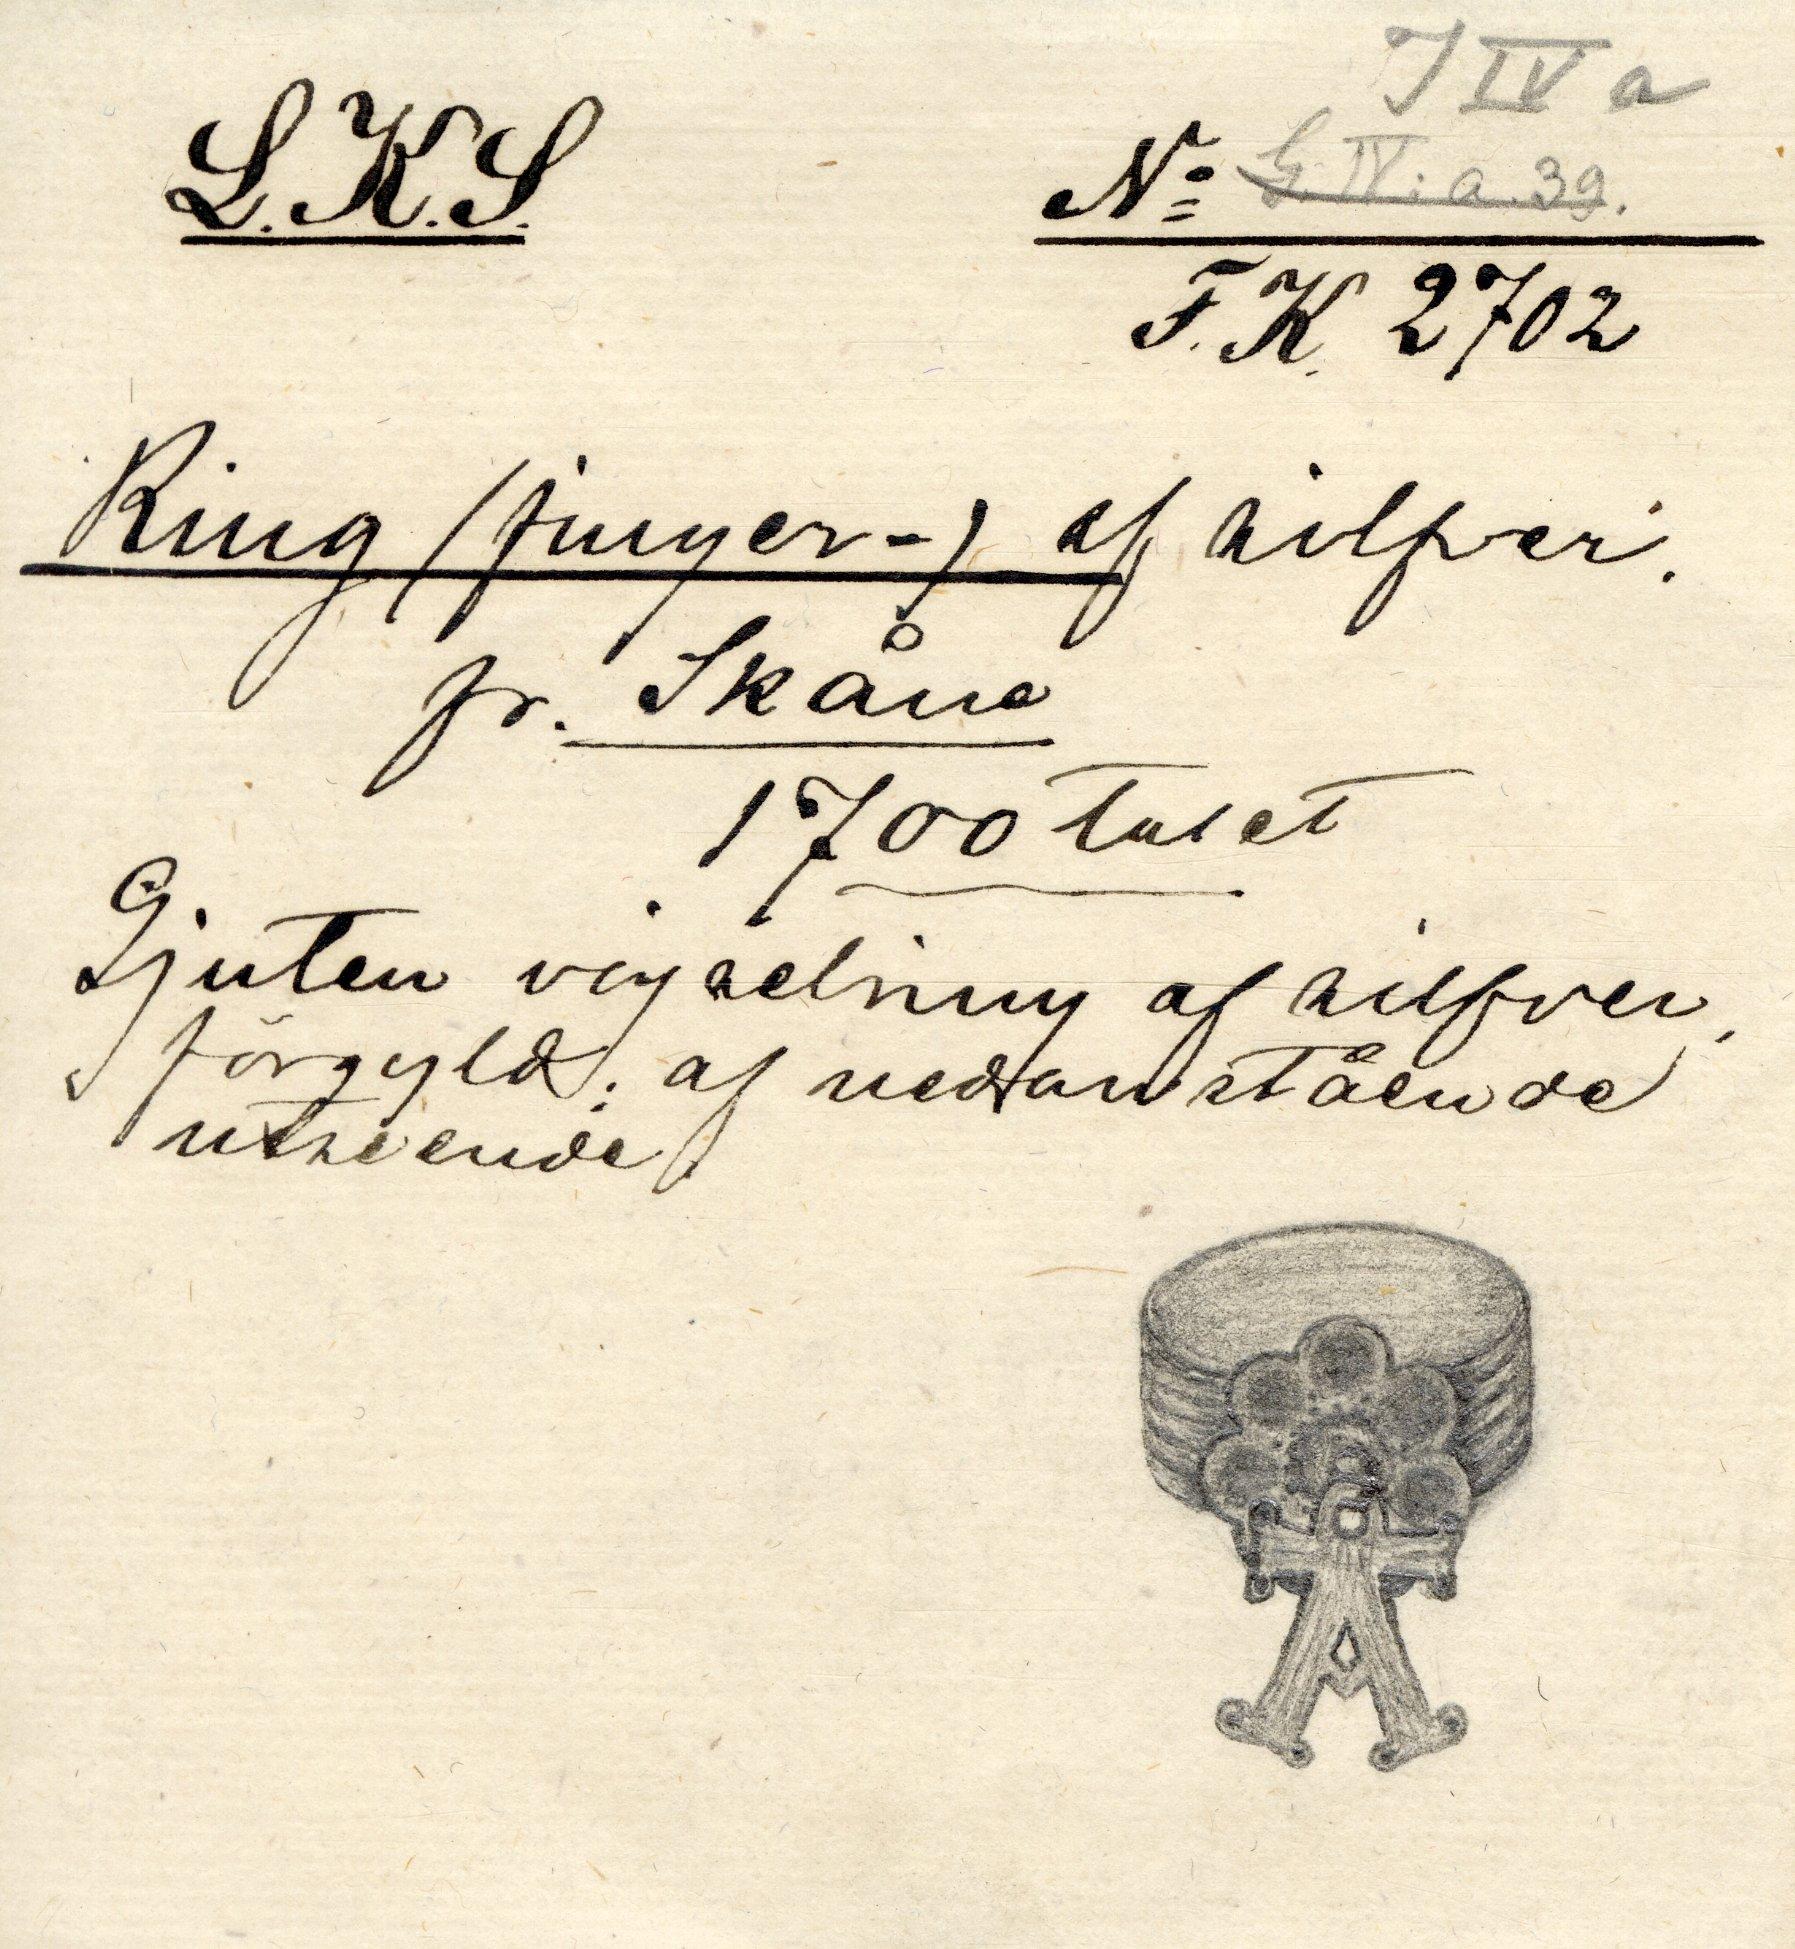 J IV a
L.K.S. No G. IV: a. 39.
F.K. 2702
Ring (finger-) af silfver.
fr. Skåne
1700 talet
Gjuten vigselring af silfver,
förgyld; af nedanstående
utseende